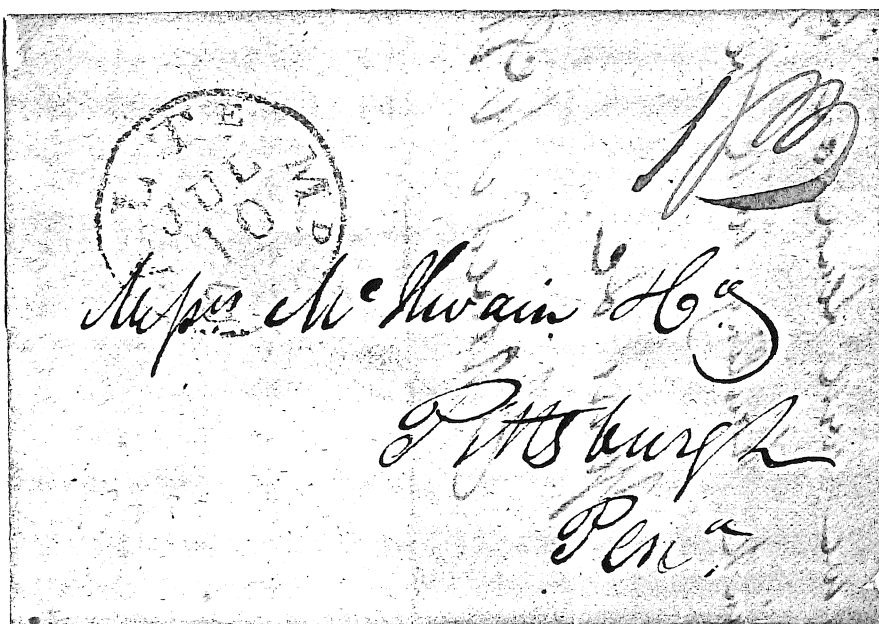 LTE MD
JUL
10
Messrs McIlwain & Co
Pittsburgh
Pena